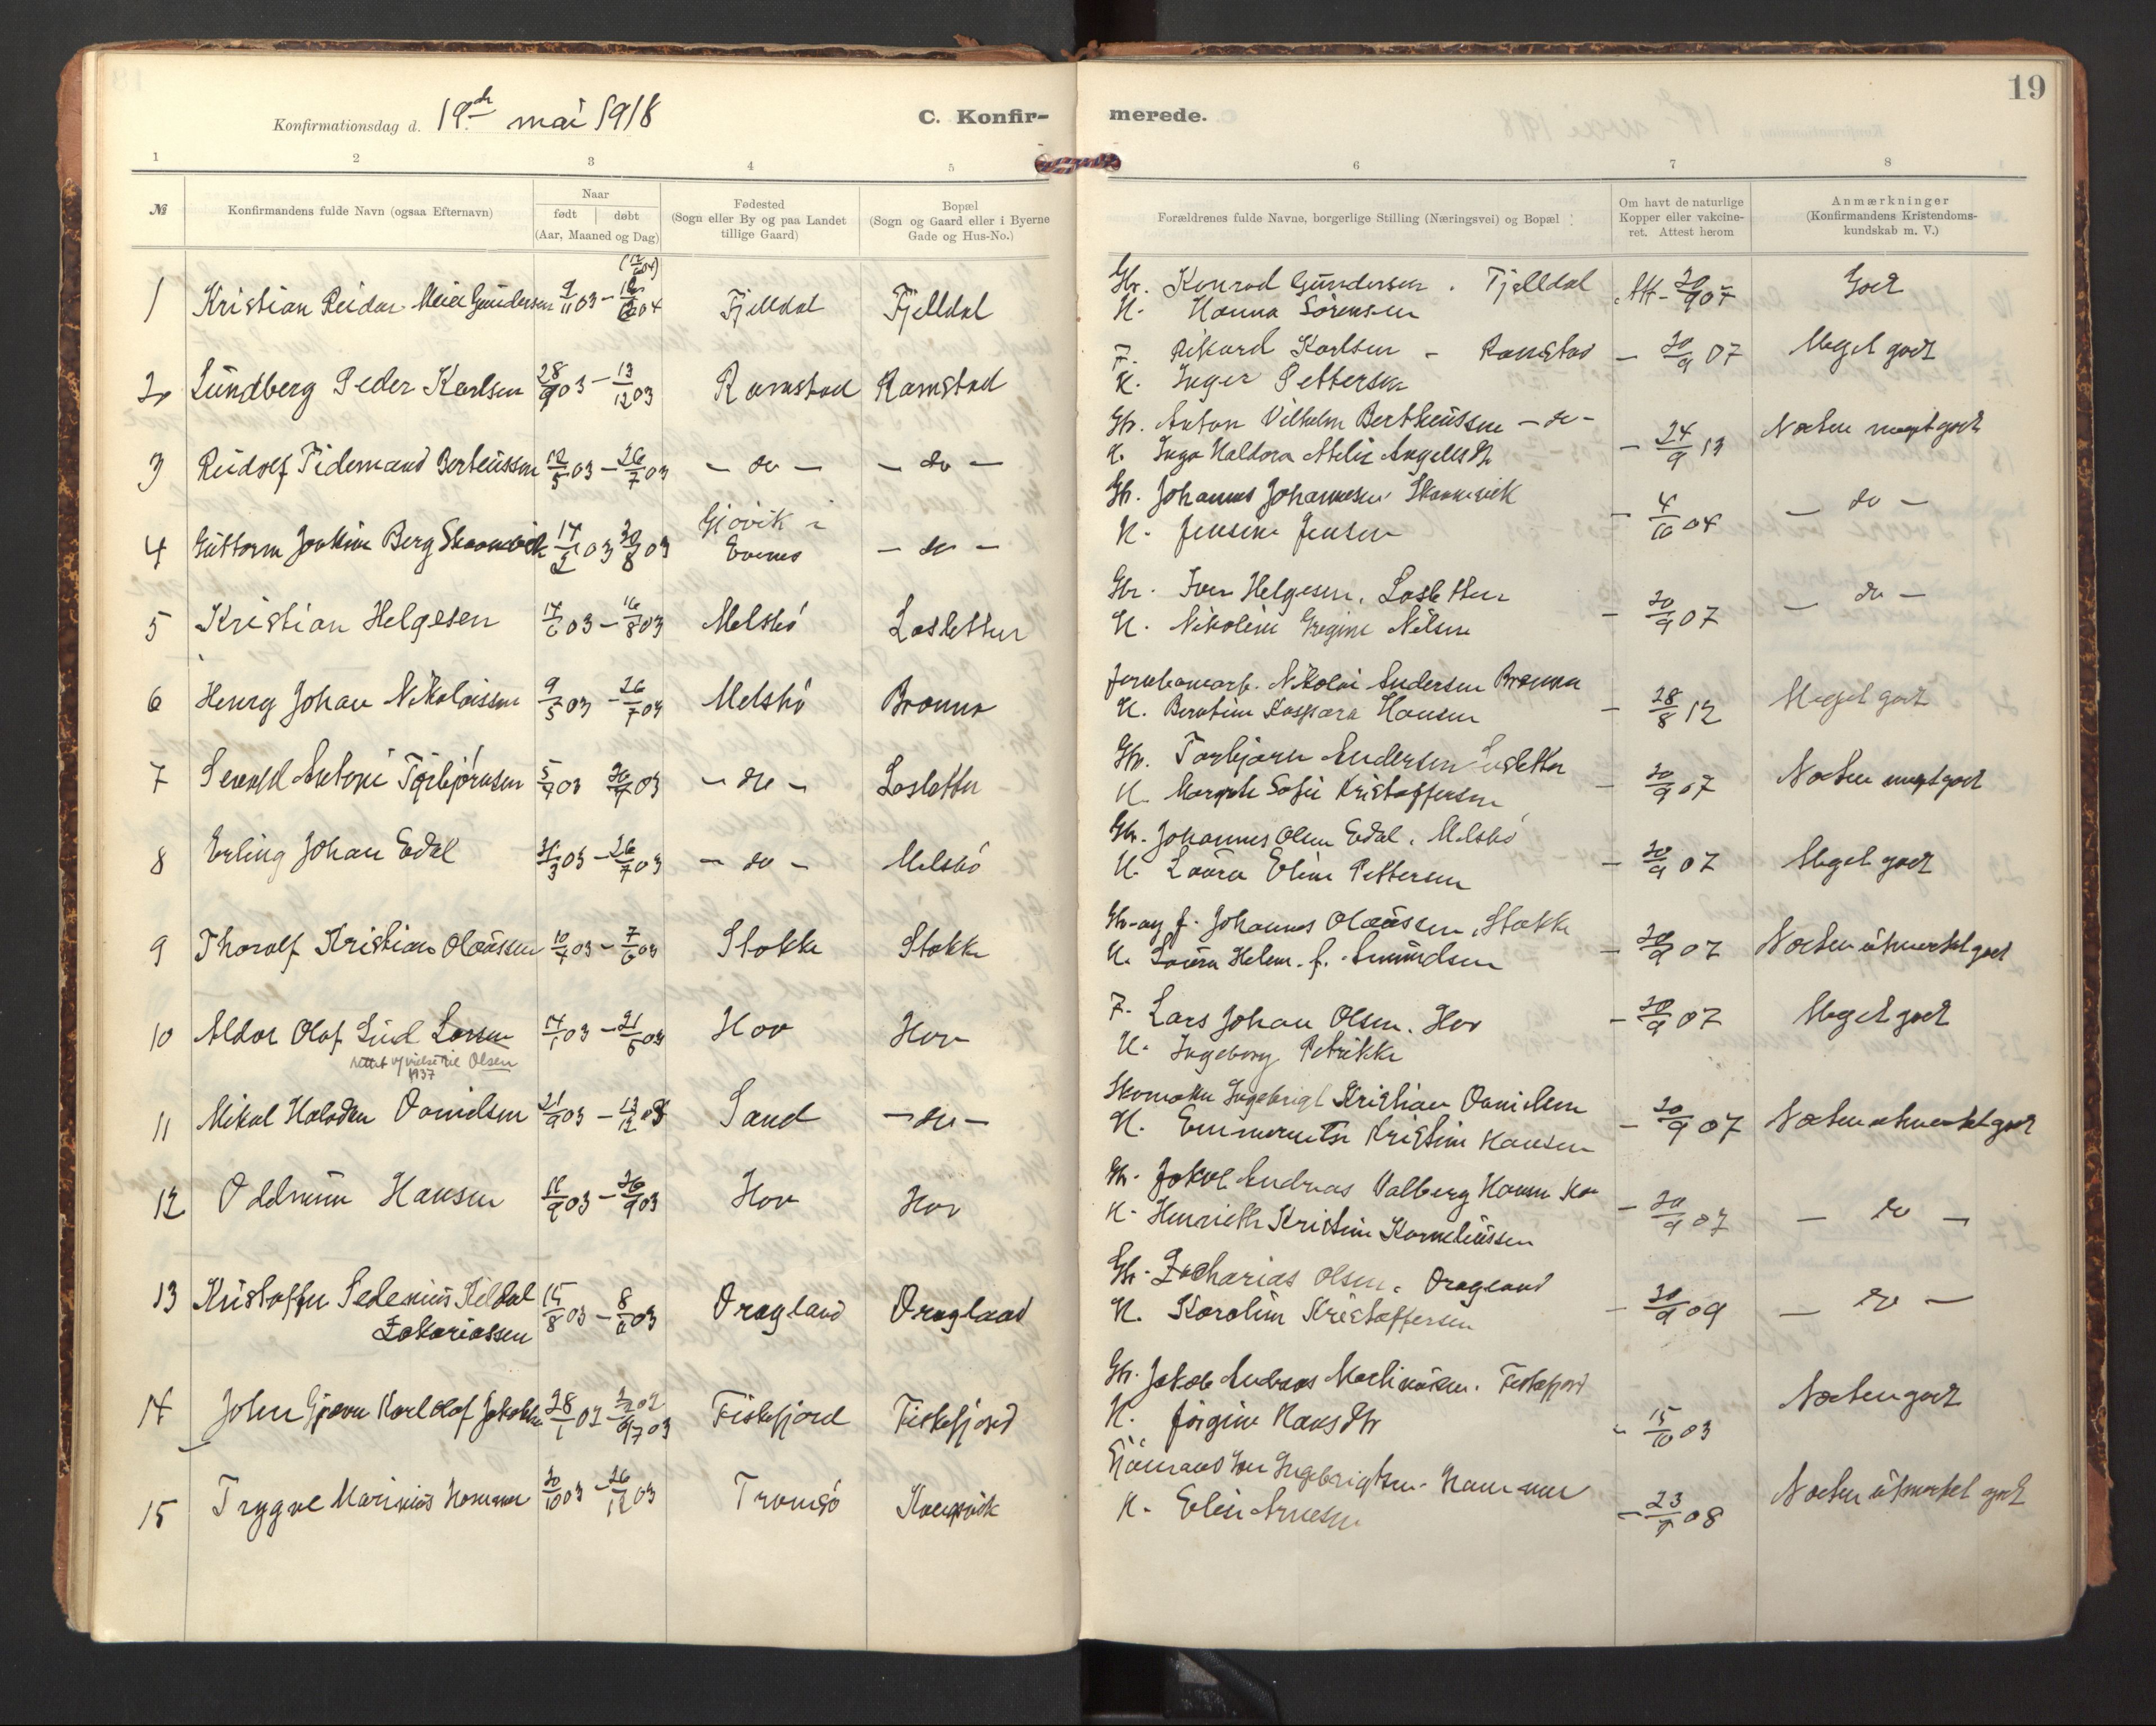 19
Konfirmationsdag d. 19de mai 1918
C. Konfirmerede.
1 2 3 4 5 6 7 8
№
Konfirmandens fulde Navn (ogsaa Efternavn)
Naar
født døbt
(Aar, Maaned og Dag)
Fødested
(Sogn eller By og paa Landet
tillige Gaard)
Bopæl
(Sogn og Gaard eller i Byerne
Gade og Hus-No.)
Forældrenes fulde Navne, borgerlige Stilling (Næringsvei) og Bopæl
Om havt de naturlige
Kopper eller vakcine-
ret. Attest herom
Anmærkninger
(Konfirmandens Kristendoms-
kundskab m. V.)
1 Kristian Reidar Meier Gundersen 9/11 03 Fjelldal Fjelldal Gbr. Konrad Gundersen. Fjelldal Att- 20/9 07 Godt
K. Hanna Sörensen
2 Lundberg Peder Karlsen 28/9 03 - 13/12 03 Ramstad Ramstad F. Rikard Karlsen - Ramstad - 20/9 07 Meget godt
K. Inger Pettersen
3 Rudolf Tidemand Berteussen 12/5 03 - 26/7 03 - do - - do - Gbr. Anton Vilhelm Bertheussen - do - - 24/9 13 Næsten meget godt
K. Inga Haldora
4 Guttorm Joakim Berg Skaanvik 17/2 03 30/8 03 Gjøvik i
Evenes - do - Gbr. Johannes Johannesen Skaanevik - 4/10 04 - do -
K. Jensine Jensen
5 Kristian Helgesen 17/6 03 - 16/8 03 Melsbó Lasletten Gbr. Iver Helgesen. Lasletten - 20/9 07 - do -
K. Nikoline Gregine Nilsen
6 Henry Johan Nikolaissen 9/5 03 - 26/7 03 Melsbó Branna Jernbanearb. Nikolai Andersen Branna - 28/8 12 Meget godt
K. Berntine Kaspara Hansen
7 Antoni Torbjörnsen 5/7 03 03 - do - Lasletten Gbr. Torbjörn Andersen Lasletten - 20/9 07 Næsten meget godt
K. Margrete Sofie Kristoffersen
8 Erling Johan Edal 03 - 26/7 03 - do - Melsbó Gbr. Johannes Olsen Edal. Melsbó - 20/9 07 Meget godt
K. Laura Eline Pettersen
9 Thoralf Kristian Olaussen 10/4 03 - 7/6 03 Stokke Stokke Gbr. og f. Johannes Olaussen, Stokke - 20/9 07 Næsten utmerket godt
K. Laura Helene f. Amundsen
10 Aldor Olaf Lind Larsen 14/1 03 - 21/6 03 Hov Hov F. Lars Johan Olsen. Hov - 20/9 07 Meget godt
Olsen
1937
K. Ingeborg Petrikke
11 Mikal Halvdan Danielsen 21/9 03 - 13/12 03 Sand - do - Skomaker Ingebrigt Kristian Danielsen - 20/9 07 Næsten utmerket godt
K. Kristine Hansen
12 Oddmun Hansen 03 - 03 Hov Hov Gbr. Jakob Andreas Valberg Hansen - 20/9 07 - do -
K. Henriette Kristine Korneliussen
13 Kristoffer Pedenius Keldal
Zakariassen 15/8 03 - 8/ 03 Dragland Dragland Gbr. Zacharias Olsen. Dragland - 20/9 09 - do -
K. Karoline Kristoffersen
14 John Karl Olof Jakobsen 28/1 02 Fiskefjord Fiskefjord Gbr. Jakob Andreas Martinussen. Fiskefjord - 15/10 03 Næsten godt
K. Jörgine Hansdtr
15 Trygve Marinius 20/10 03 - 26/12 03 Tromsö Ingebrigtsen - 23/ 08 Næsten utmerket godt
K. Eline Arnesen